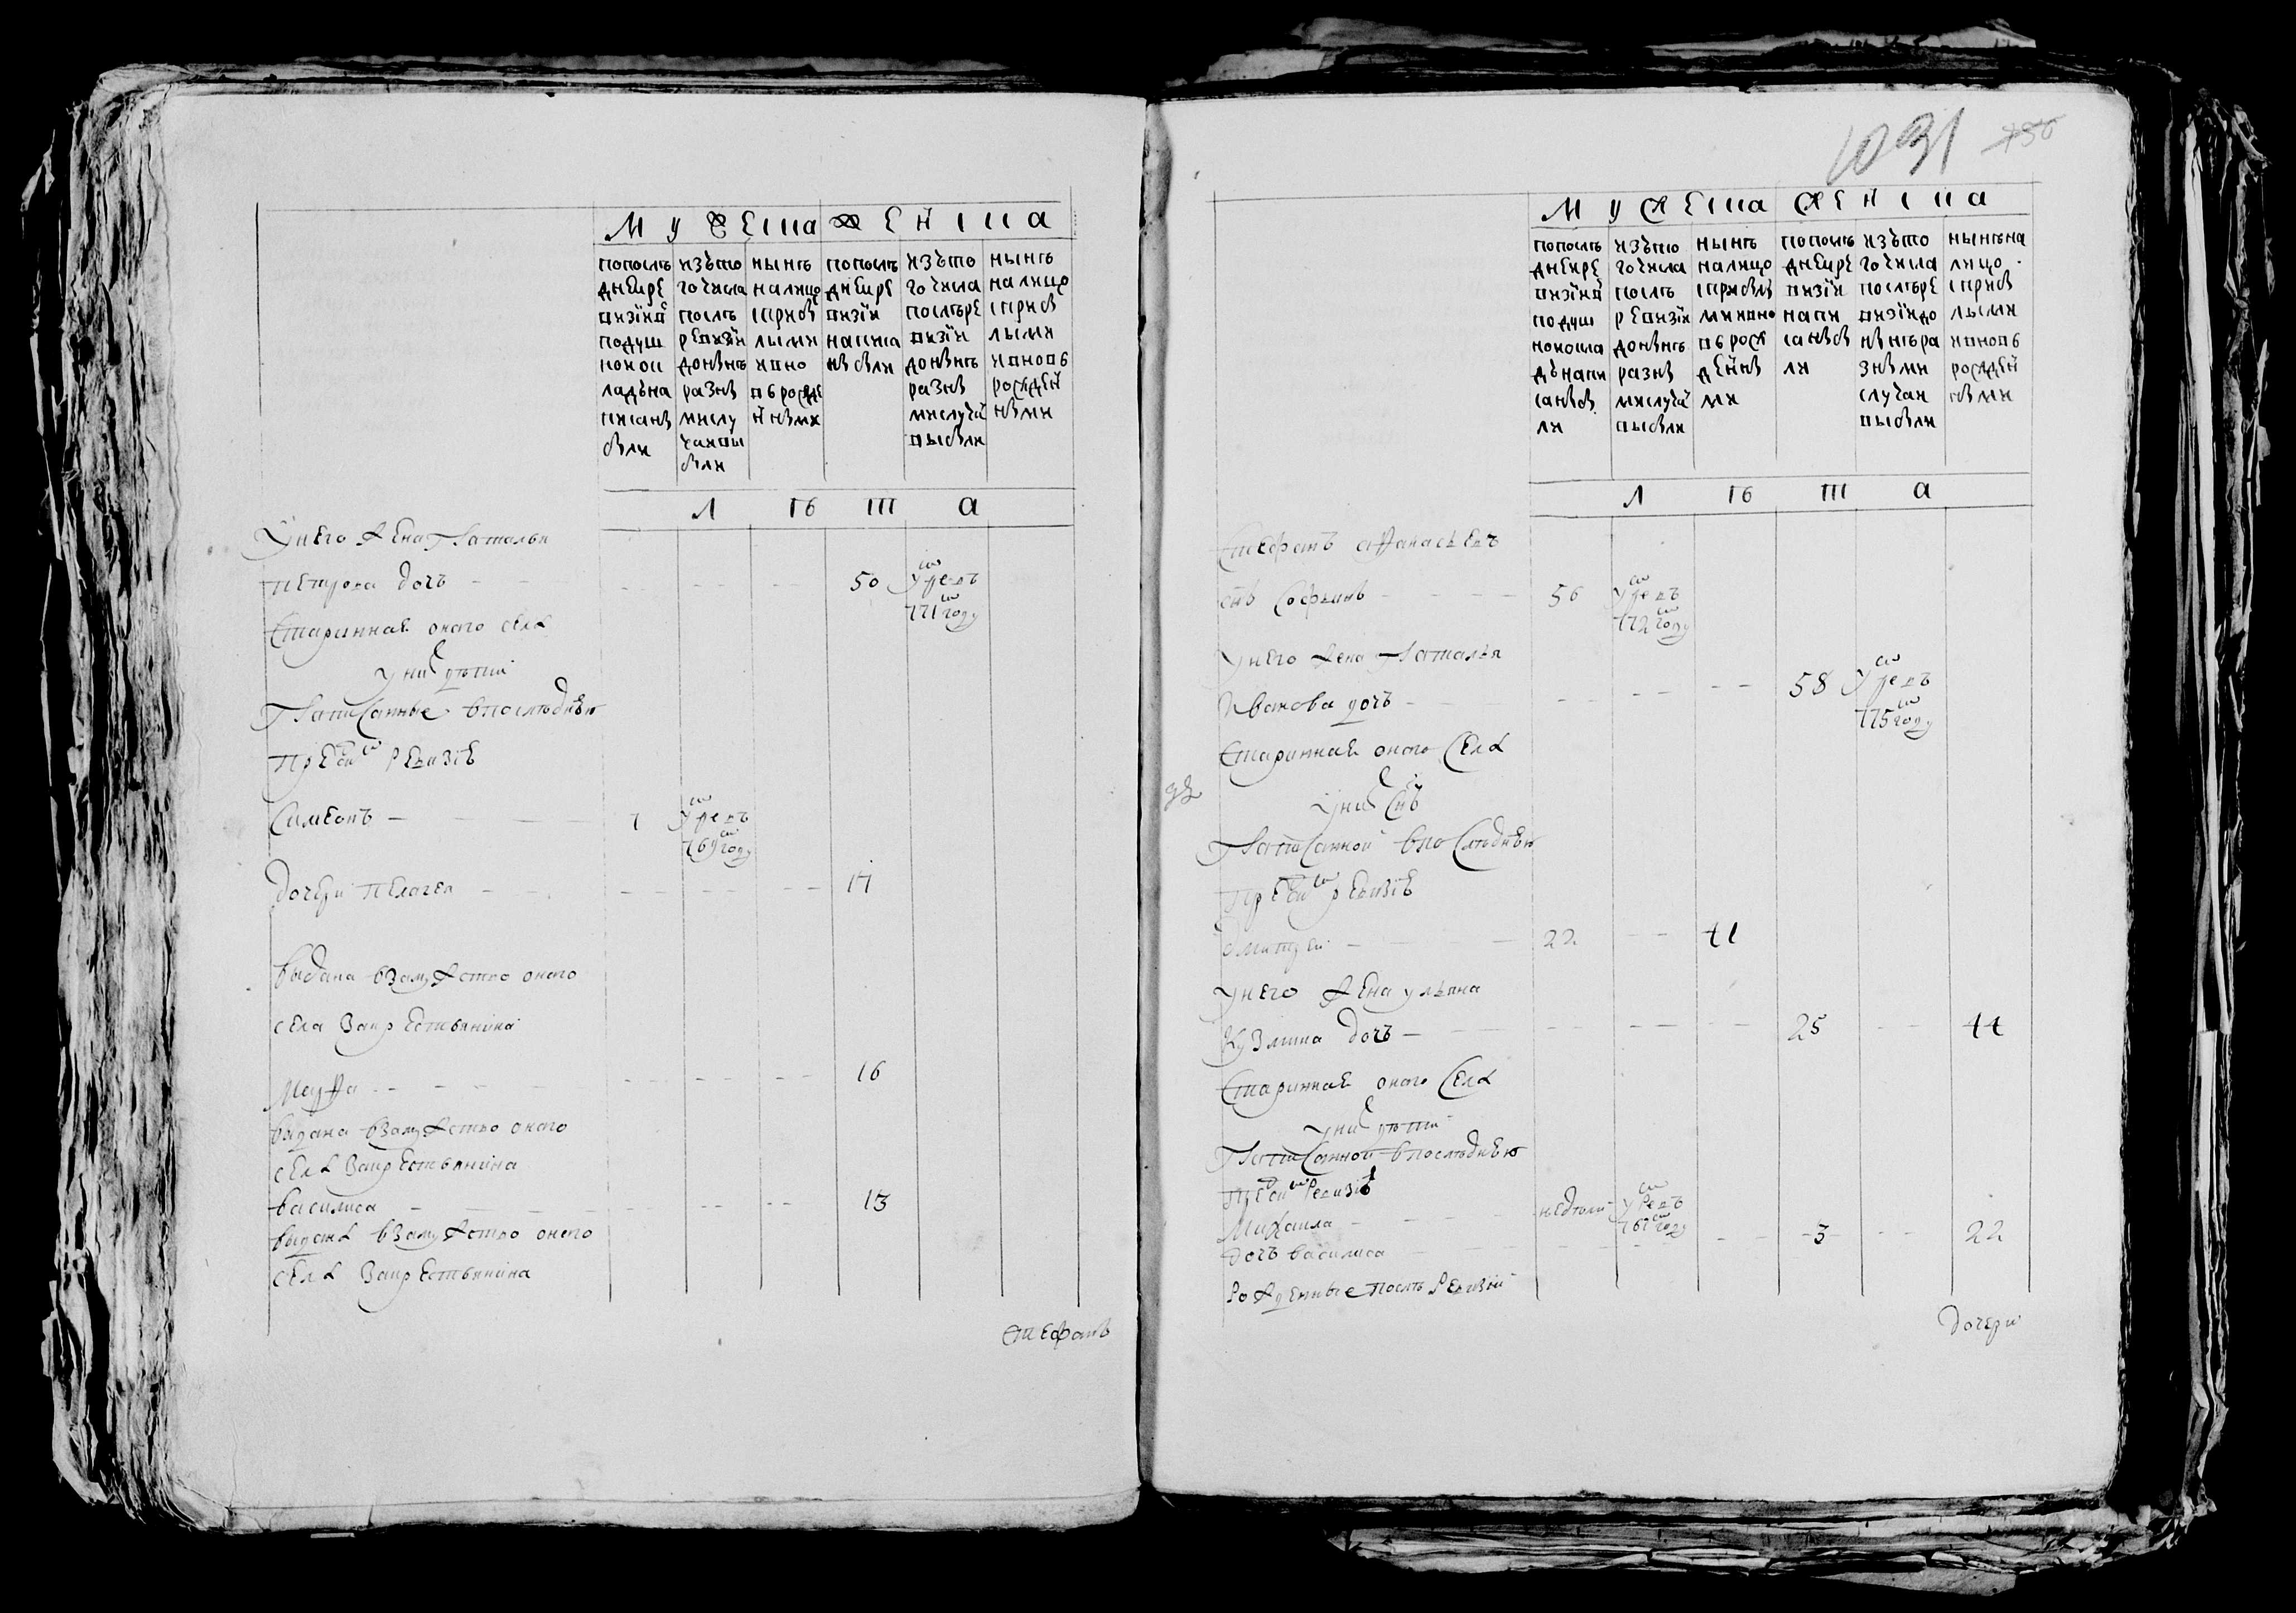 Мужеска Женска
попослѣ
днейре
визіипо
подуш
номокл
ладѣна
писаны
были
изъто
гочисла
послѣ
ревизіи
донынѣ
разны
мислу
чаивы
были
нынѣ
налицо
сприб
лыми
ивно
вьрожде
нными
попослѣ
днейре
визіи
написа
ны были
изъто
гочисла
послѣре
визіи
донынѣ
разны
мислучаи
выбыли
нынѣ
налицо
сприб
лыми
ивновь
рожден
ными
Л ѣ т а
Унего жена Наталья
Петрова дочь 50 умре въ 771 году
Старинная оного села
У них дѣти
Написанные впослѣднею
Пред сию ревизіе
Симеонъ 7 умре въ 769 году
Дочери Пелагея 17
Выдана взамужство оного
села за крестьянина
Марфа 16
Выдана взамужство оного
села за крестьянина
Василиса 13
Выдана взамужство оного
села за крестьянина
Стефанъ
1031
Мужеска Женска
попослѣ
днейре
визіипо
подуш
номокла
дѣнапи
саныбы
ли
изъто
гочисла
послѣ
ревизіи
донынѣ
разны
мислучаи
выбыли
нынѣ
налицо
сприблы
миивно
ворож
денны
ми
попослѣ
днейре
визіи
напи
саныбы
ли
изъто
гочисла
послѣре
визіидо
нынѣра
зными
случаи
выбыли
нынѣна
лицо
сприб
лыми
ивновь
рожден
ными
Л ѣ т а
Стефанъ Афанасьевъ
снъ Софьинъ 56 умре въ 772 году
Унего жена Наталья
Иванова дочь 58 умре въ 775 году
Старинная оного села
У них снъ
Написанной впослѣднею
Пред сию ревизіе
Дмитрей 22 41
Унего жена Ульяна
Кузмина дочь 25 44
Старинная оного села
У них дѣти
Написанной впослѣднею
Пред сию ревизіе
Михаила недѣли умре въ 762 году
дочь Василиса 3 22
Рожденные послѣ ревизіи
Дочери